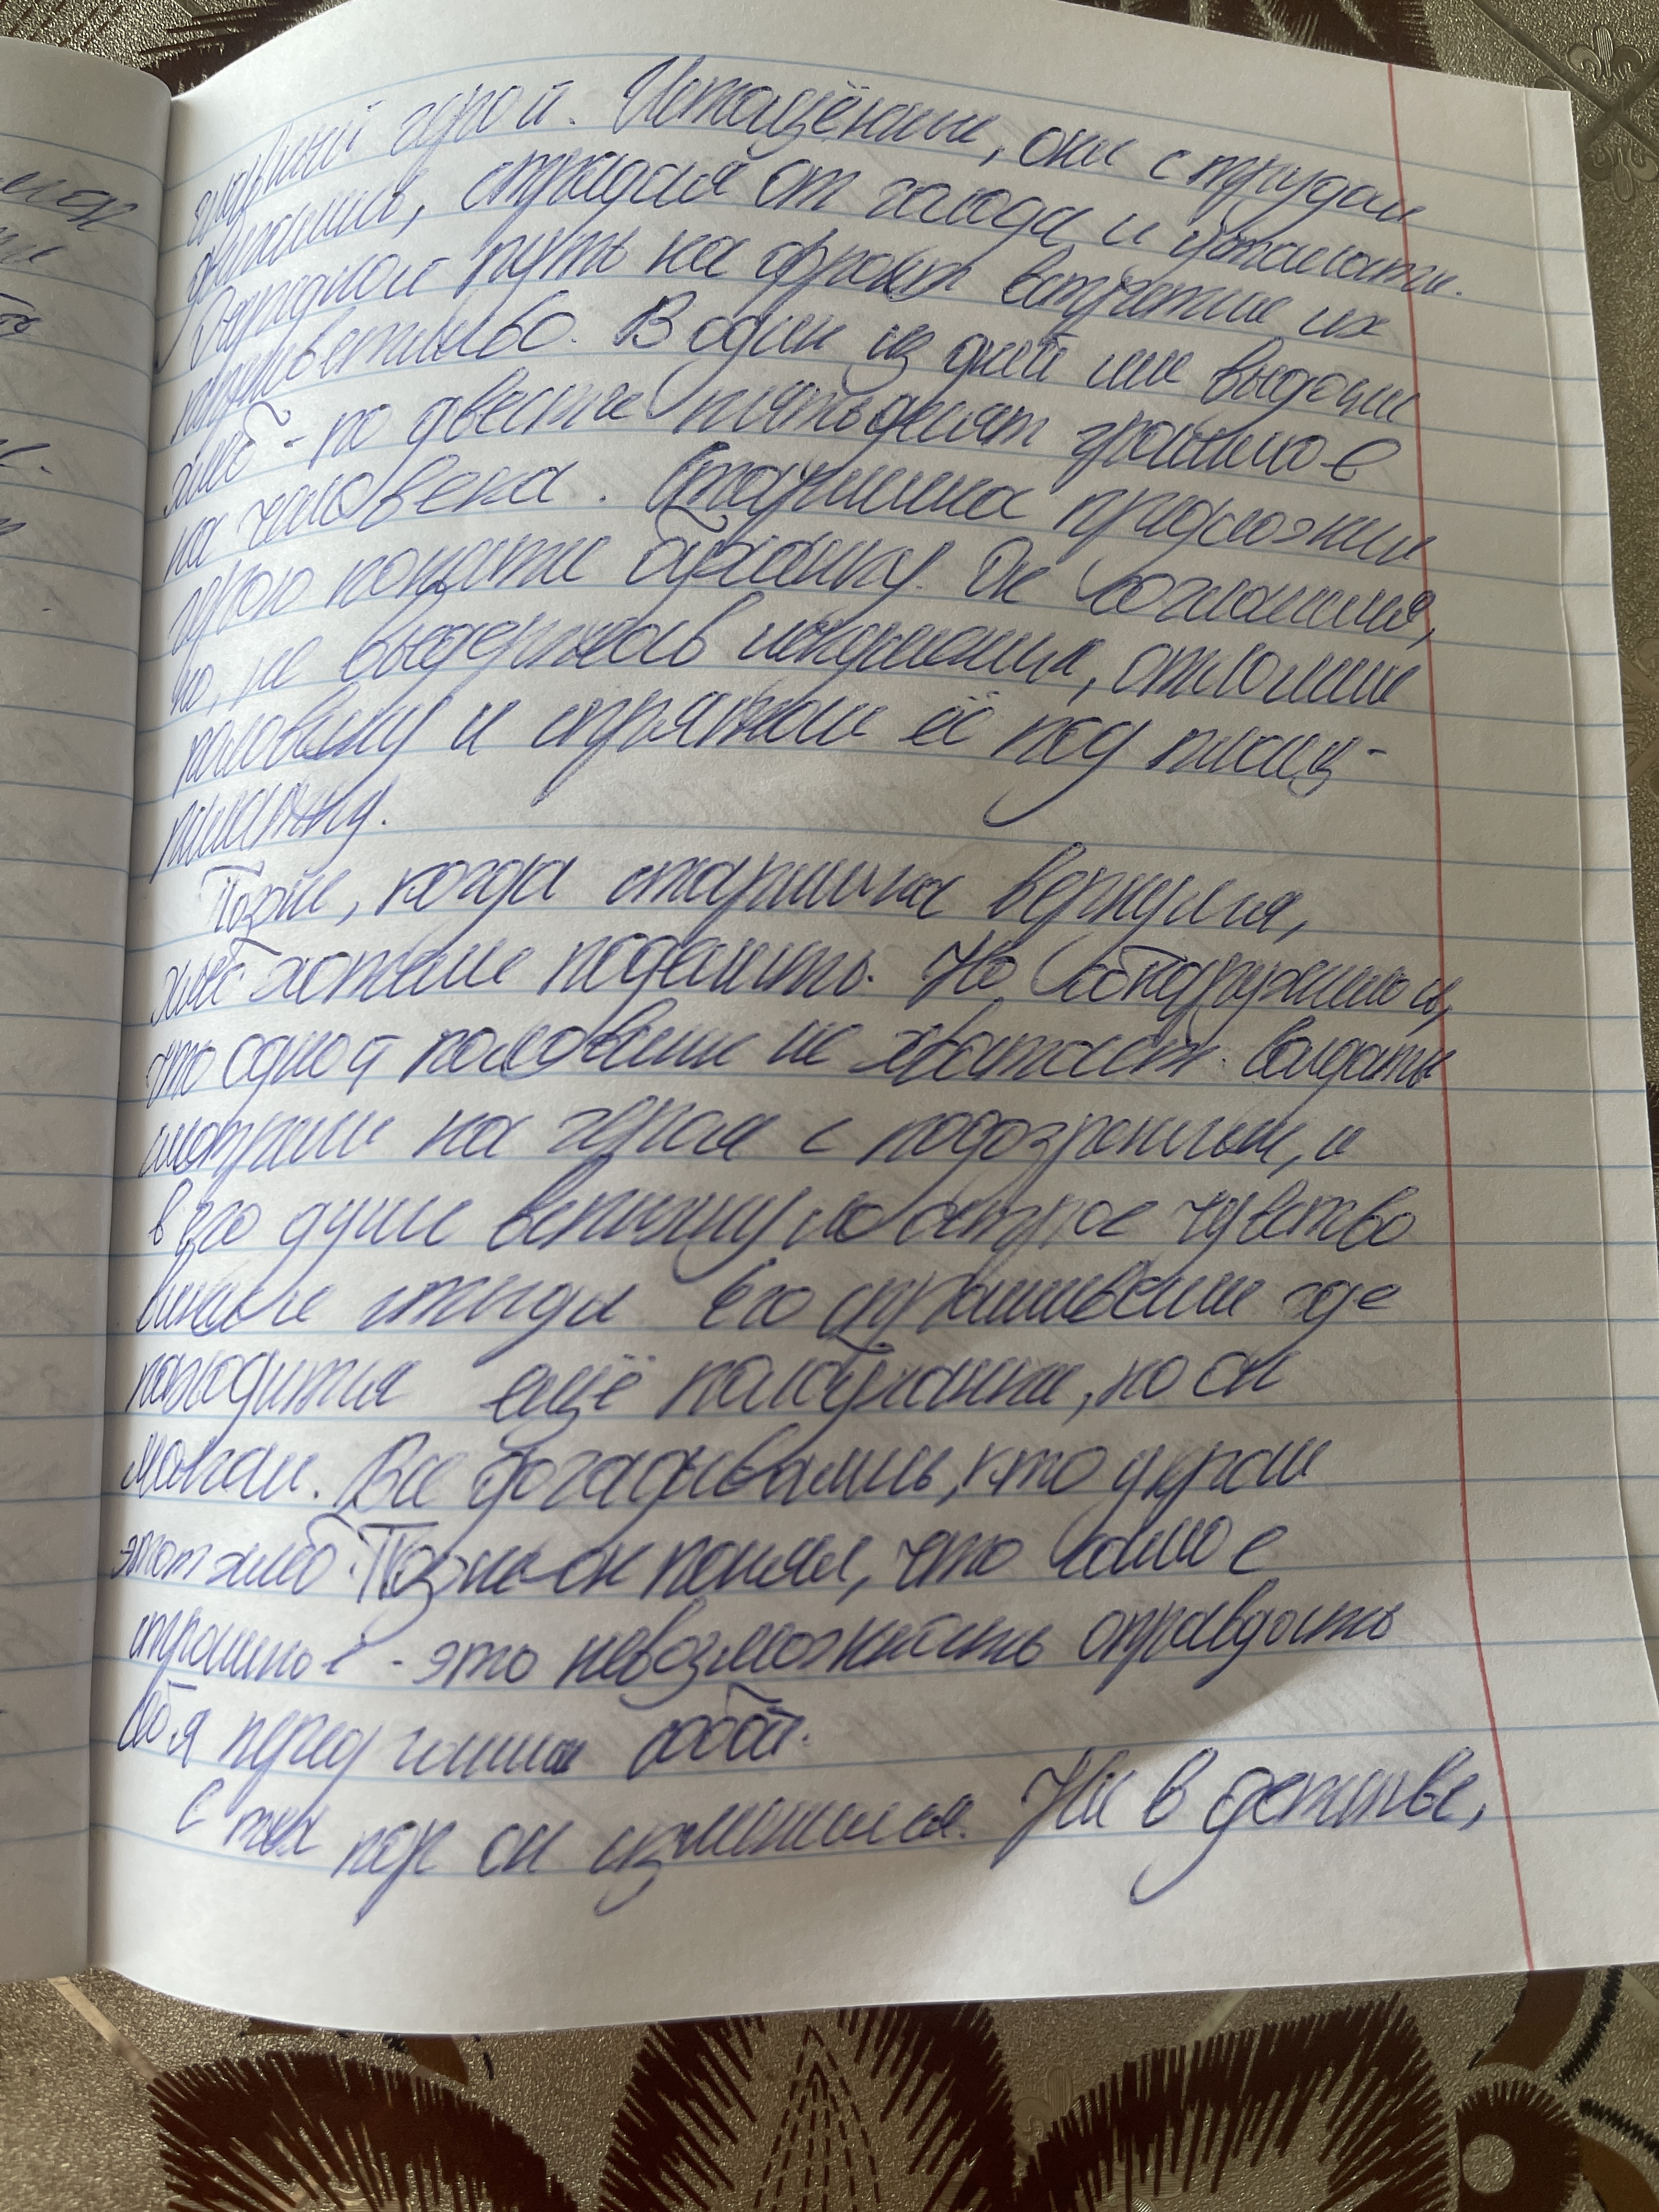 главный герой. Истощённые, они с трудом
двигались, страдая от голода и усталости.
Очередной путь на фронт встретил их
неприветливо. В один из дней им выдали
хлеб - по двести пятьдесят граммов
на человека. Старшина предложил
герою копати буханку. Он согласился,
но, не выдержав искушения, отломил
половину и спрятал её под плащ-
палатку.
Позже, когда старшина вернулся,
хлеб хотели поделить. Но обнаружилось,
что одной половины не хватает. Солдаты
смотрели на героя с подозрением, и
в его душе вспыхнуло острое чувство
вины и стыда. Его спрашивали где
находится ещё полбуханки, но он
молчал. Все догадывались, кто украл
этот хлеб. Позже он понял, что самое
страшное - это невозможность оправдать
себя перед самим собой.
С тех пор он изменился. Ни в детстве,